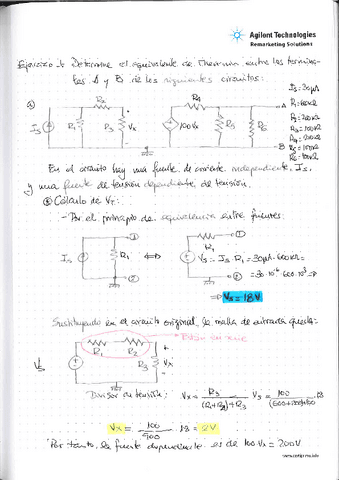 Agilent Technologies
Remarketing Solutions
Ejercicio 1: Determine el equivalente de Thevenin entre los termina-
les A y B de los siguientes circuitos:
a)
Is
R1
R2
R3
Vx
100Vx
R4
R5
R6
A
B
Is = 30μA
R1 = 600kΩ
R2 = 200kΩ
R3 = 100kΩ
En el circuito hay una fuente de corriente independiente, Is,
y una fuente de tensión dependiente de tensión.
Cálculo de VT:
- Por el principio de equivalencia entre fuentes:
Is
R1
1
2
R1
1
2
VS = Is · R1 = 30μA · 600kΩ =
= 30·10⁻⁶ · 600·10³ =>
=> VS = 18V.
Sustituyendo en el circuito original, la malla de entrada queda:
Están en serie
VS
R1
R2
R3
Vx
Divisor de tensión:
Vx = R3 / ((R1+R2)+R3) · VS = 100 / (600+200+100) · 18
Vx = 100/900 · 18 = 2V
Por tanto, la fuente dependiente es de 100Vx = 200V